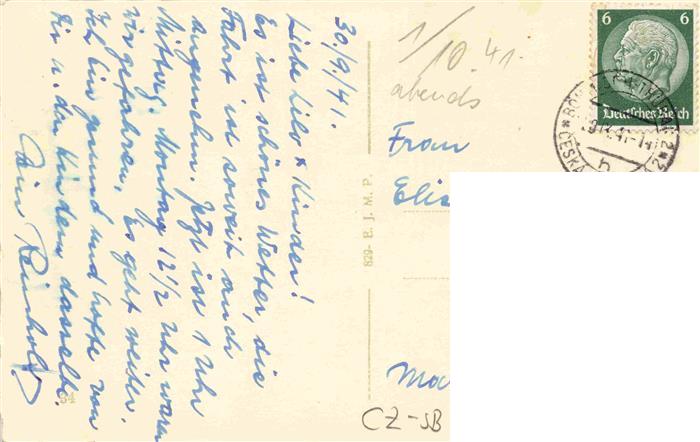 30/9/41.
Liebe Lilo & Kinder!
Es ist schönes Wetter, die
Fahrt ist soweit auch
angenehm. Jetzt ist 1 Uhr
Mittag. Montag 12½ Uhr waren
wir gefahren. Es geht weiter.
Ich bin gesund und hoffe von
Dir u. den Kindern dasselbe.
Dein Reinhold
84
829- E. J. M. P.
1/10.41.
abends
Frau
Elis
6 6
Deutsches Reich
CZ-SB